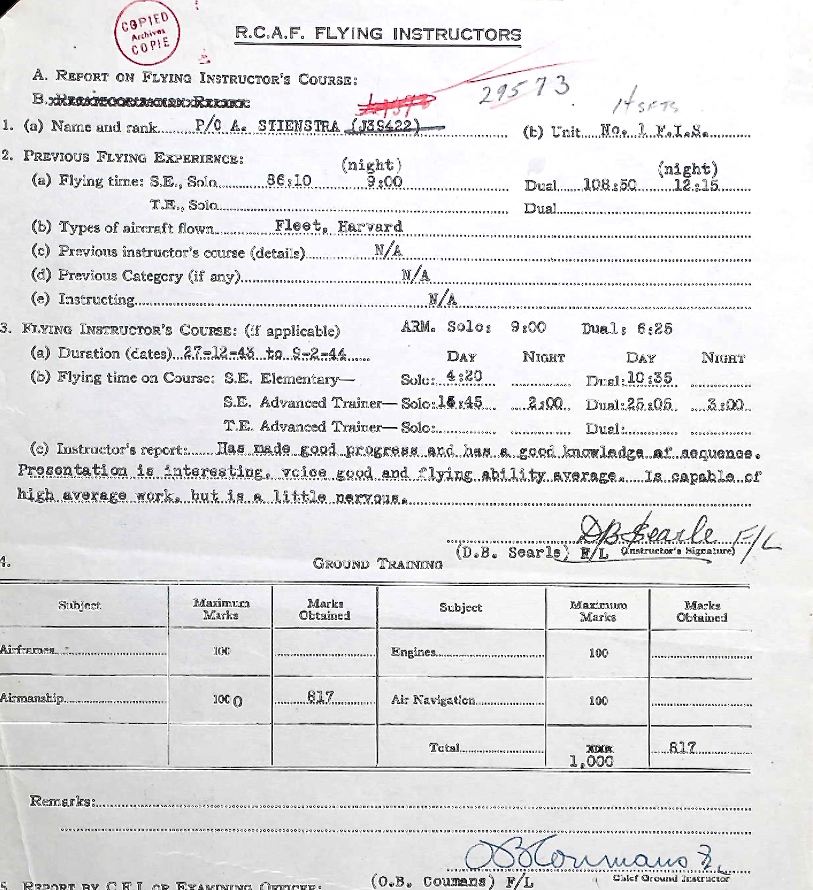 COPIED
Archives
COPIE
R.C.A.F. FLYING INSTRUCTORS
A. REPORT ON FLYING INSTRUCTOR'S COURSE:
B.
29573
1. (a) Name and rank P/O A. STIENSTRA (J35422) (b) Unit No. 1 F.I.S.
2. PREVIOUS FLYING EXPERIENCE: (night) (night)
(a) Flying time: S.E., Solo 86:10 9:00 Dual 108:50 12:15
T.E., Solo Dual
(b) Types of aircraft flown Fleet, Harvard
(c) Previous instructor's course (details) N/A
(d) Previous Category (if any) N/A
(e) Instructing N/A
3. FLYING INSTRUCTOR'S COURSE: (if applicable) ARM. Solo: 9:00 Dual: 6:25
(a) Duration (dates) 27-12-43 to 9-2-44 DAY NIGHT DAY NIGHT
(b) Flying time on Course: S.E. Elementary— Solo: 4:20 Dual: 10:35
S.E. Advanced Trainer— Solo: 15:45 2:00 Dual: 25:05 3:00
T.E. Advanced Trainer— Solo: Dual:
(c) Instructor's report: Has made good progress and has a good knowledge of sequence.
Presentation is interesting, voice good and flying ability average. Is capable of
high average work, but is a little nervous.
DB Searle F/L
(D.B. Searls) F/L (Instructor's Signature)
4. GROUND TRAINING
Subject Maximum Marks Marks Obtained Subject Maximum Marks Marks Obtained
Airframes 100 Engines 100
Airmanship 1000 817 Air Navigation 100
Total 1,000 817
Remarks:
OB Coumans
(O.B. Coumans) F/L Chief Ground Instructor
5. REPORT BY C.F.I. OR EXAMINING OFFICER: